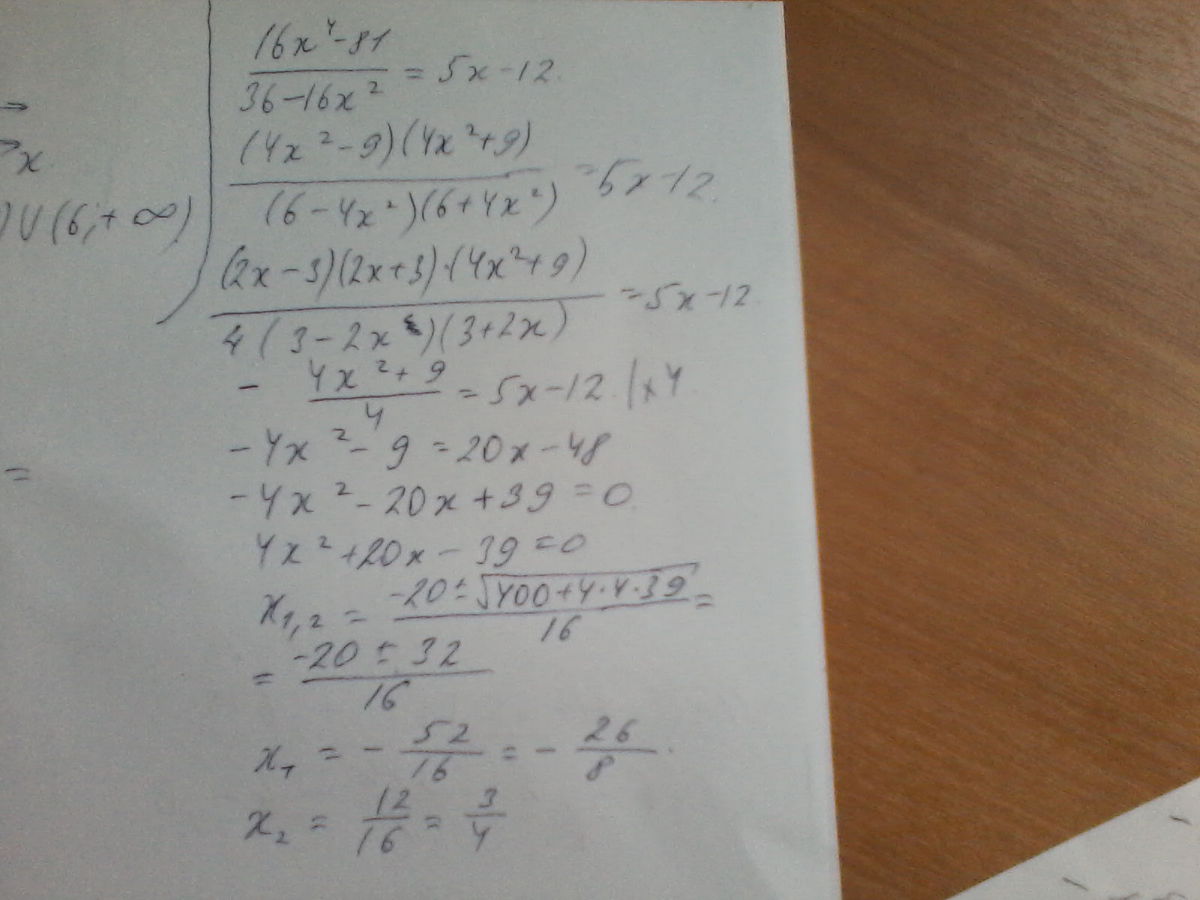 →
→ x
) ∪ (6, + ∞)
=
(16x⁴ - 81)/(36 - 16x²) = 5x - 12.
((4x² - 9)(4x² + 9))/((6 - 4x²)(6 + 4x²)) = 5x - 12.
((2x - 3)(2x + 3)·(4x² + 9))/(4(3 - 2x)(3 + 2x)) = 5x - 12
- (4x² + 9)/4 = 5x - 12 | × 4
-4x² - 9 = 20x - 48
-4x² - 20x + 39 = 0
4x² + 20x - 39 = 0
x₁,₂ = (-20 ± √(400 + 4·4·39))/16 =
= (-20 ± 32)/16
x₁ = - 52/16 = - 26/8.
x₂ = 12/16 = 3/4